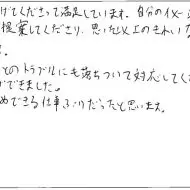 げてくださって満足しています。自分のイメー
提案してくださり、思った以上のきれいな
とのトラブルにも落ちついて対応してく
ができました。
めできる仕事ぶりだったと思います。